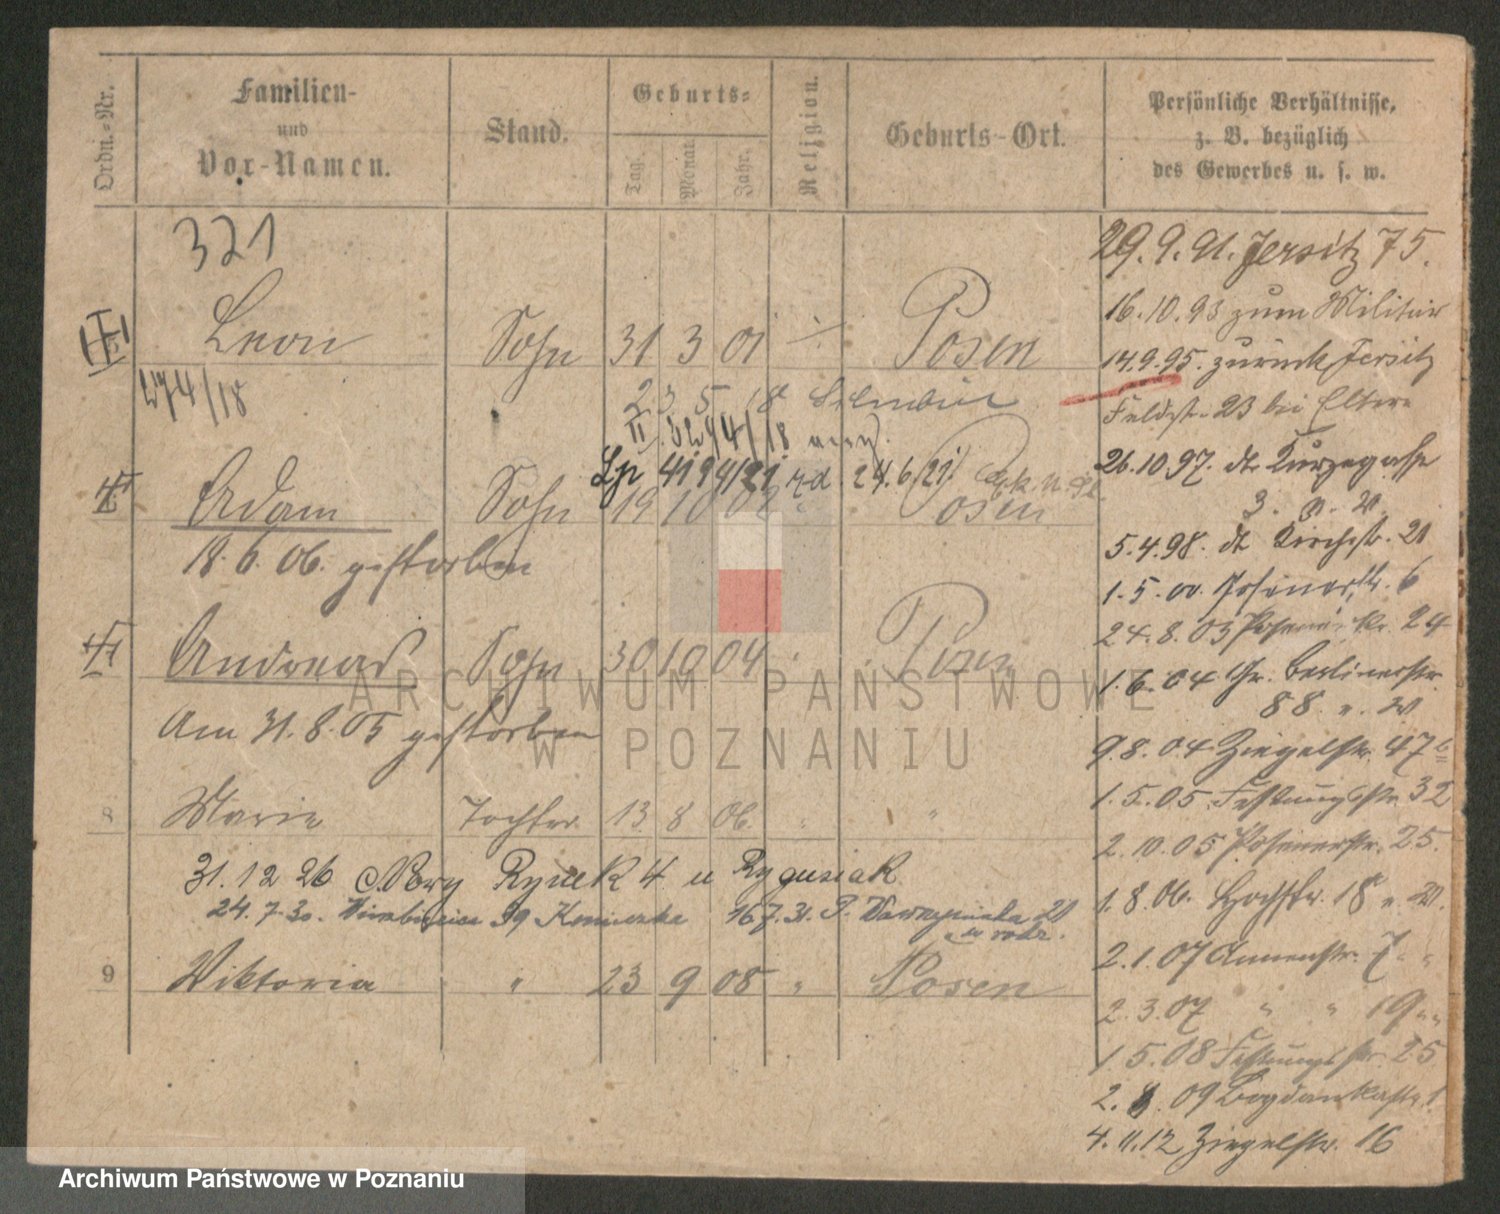 Ordn.-Nr.
Familien-
und
Vor-Namen.
Stand.
Geburts-
Tag.
Monat
Jahr.
Religion.
Geburts-Ort.
Persönliche Verhältnisse,
z. B. bezüglich
des Gewerbes u. s. w.
321
Leon Sohn 31 3 01 ÷ Posen
274/18
2 3 5 18
41 94/21 24.6.21.
Adam Sohn 19 10 02 " Posen
18.6.06. gestorben
Andreas Sohn 30 10 04 " Posen
Am 31.8.05 gestorben
8 Marie Tochter 13 8 06. " "
31.12 26 Nowy Rynek 4 u Rygusiak
24.7.30. 39 Konieczka 16 7.31. P. Wawrzyniaka 21
9 Viktoria " 23 9 08 " Posen
29.9.91. Jersitz 75.
16.10.93 zum Militär
14.9.95. zurück Jersitz
Feldstr. 23 bei Eltern
26.10 97. dt. Kurzegasse
3. n. W.
5.4.98. dt Kirchstr. 21
1.5.00. Posenerstr. 6
24.8.03 Posener Str. 24
1.6.04 Gr. Berlinerstr.
88 n. W
9.8.04 Ziegelstr. 47
1.5.05. Festungsstr 32
2.10.05 Posenerstr. 25.
1.8.06. Hochstr. 18 n. W.
2.1.07 Annenstr. 7 " "
2.3.07 " " 19 " "
1.5.08 Festungsstr. 25
2. 09 Bogdankastr. 1
4.11.12 Ziegelstr. 16
ARCHIWUM PAŃSTWOWE
W POZNANIU
Archiwum Państwowe w Poznaniu